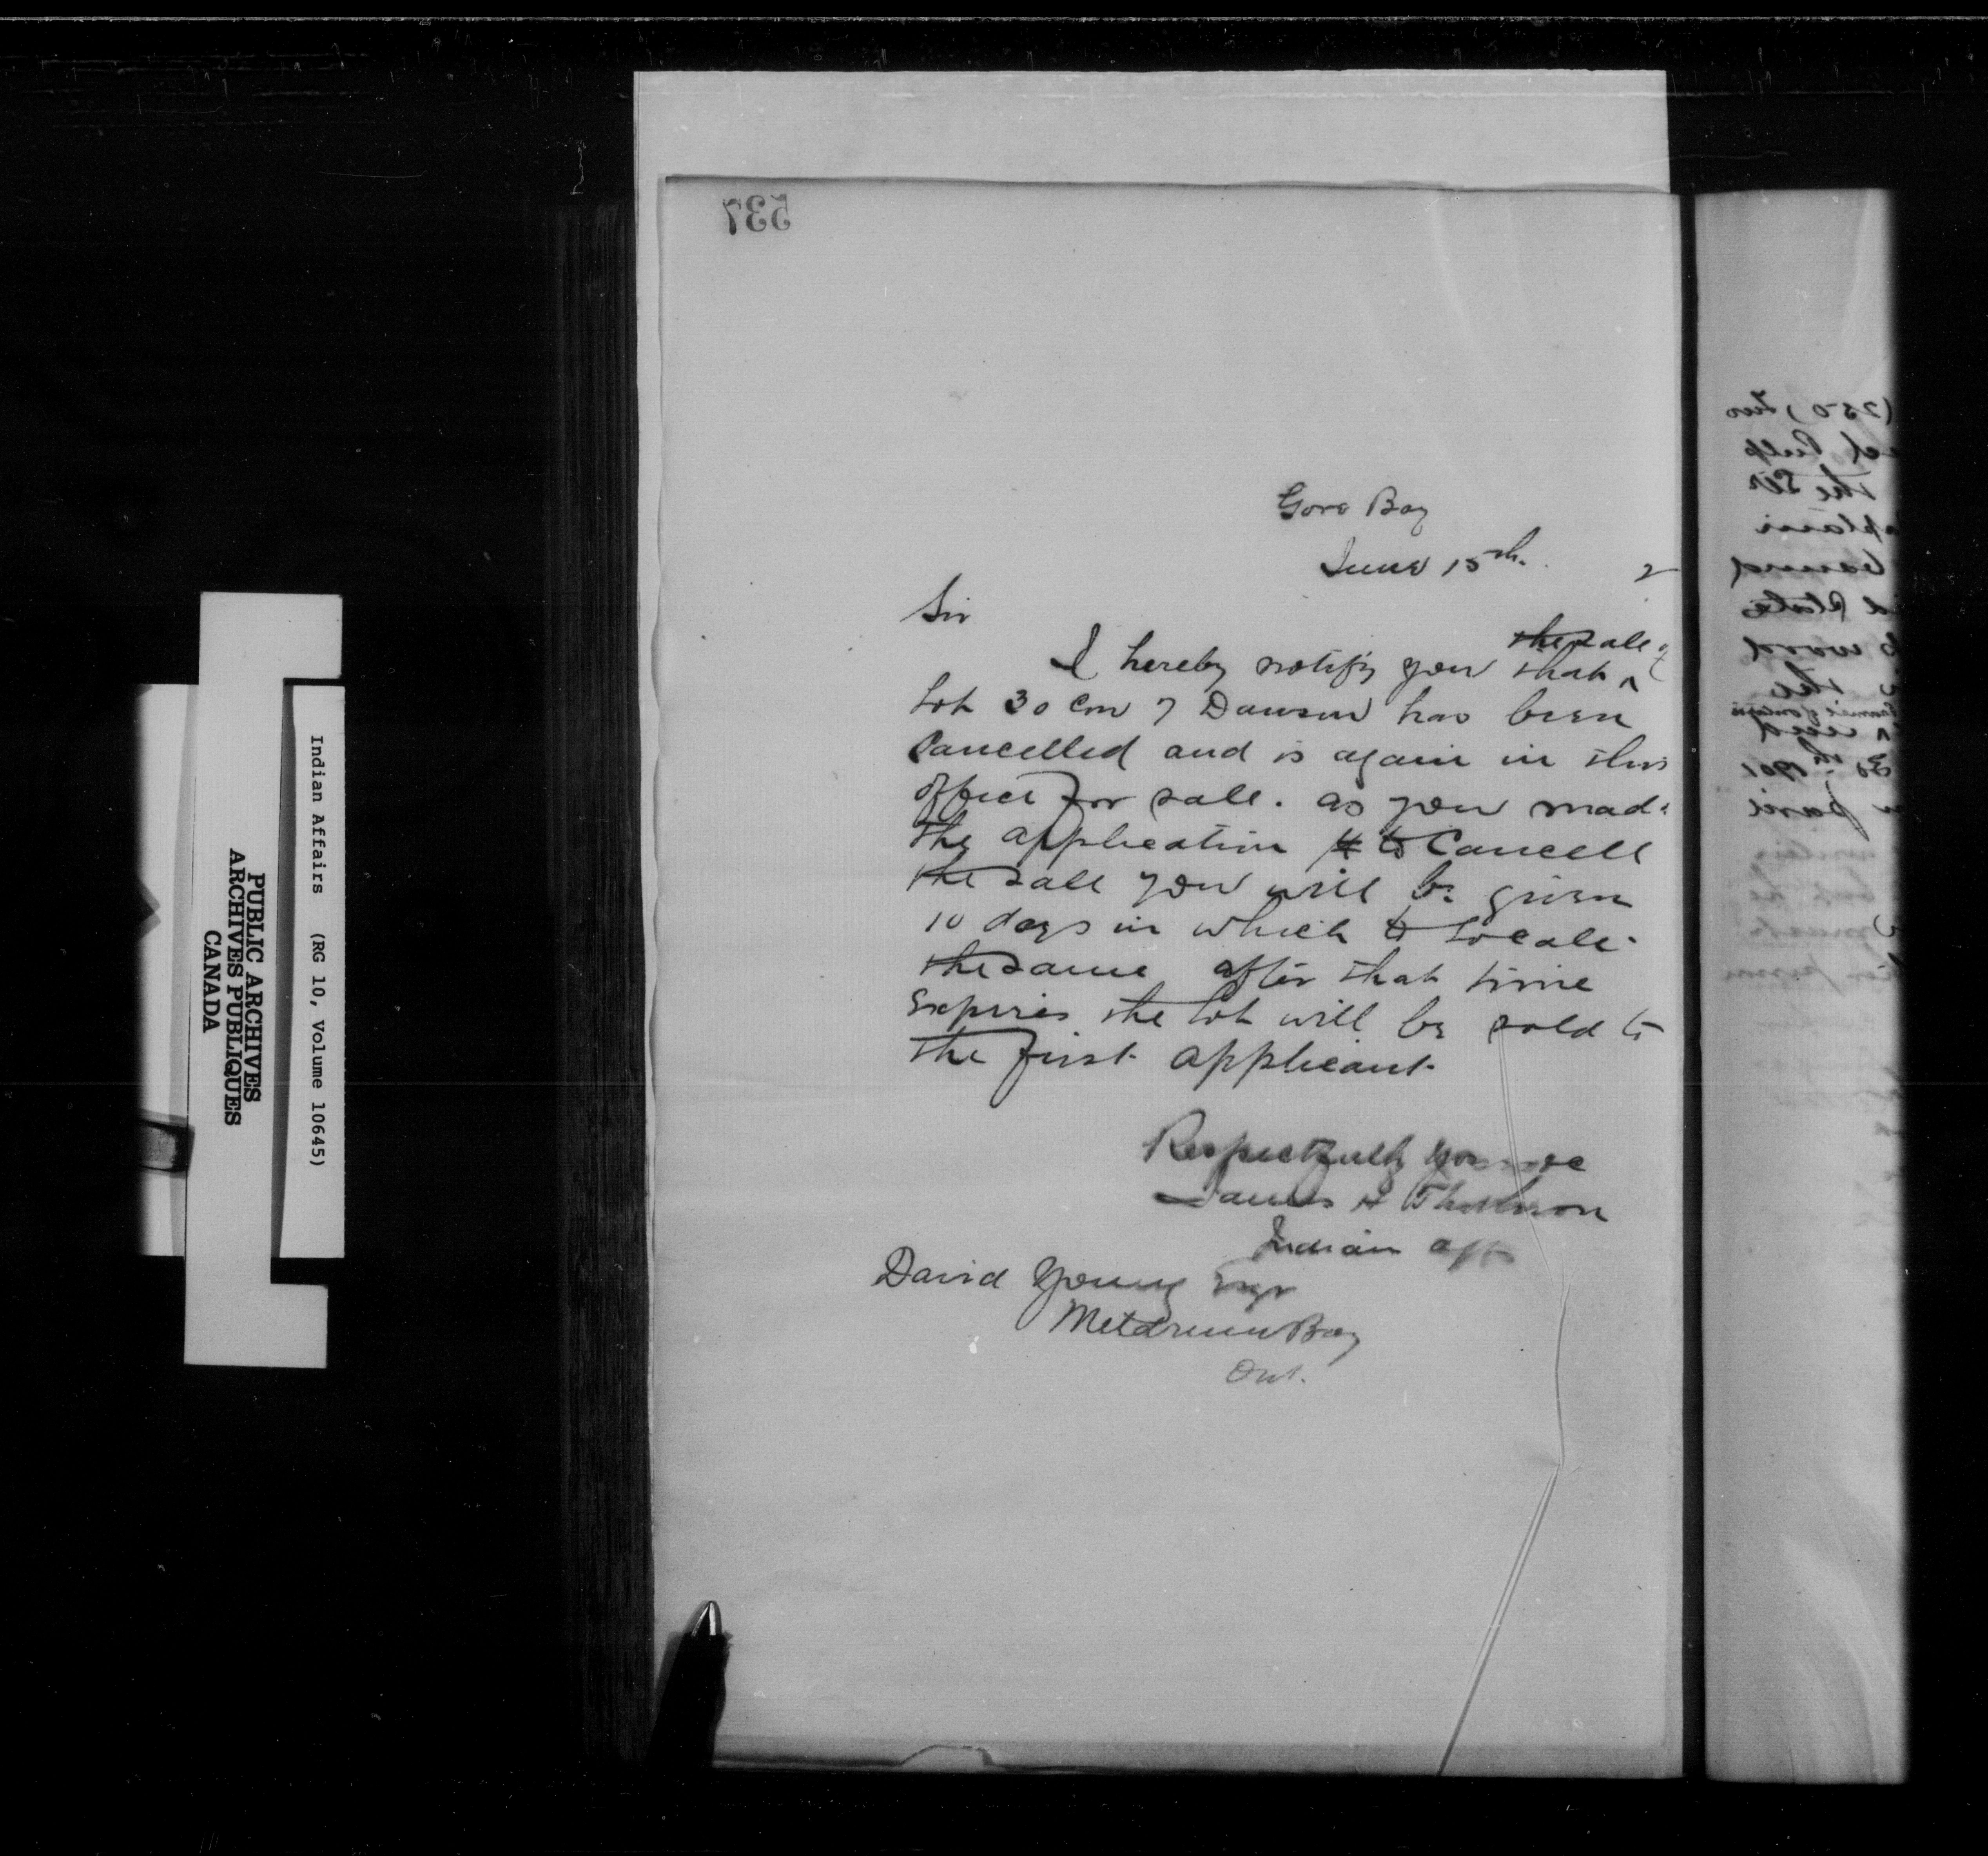 537
Gore Bay
June 15th. 2
Sir
I hereby notify you that ^ the sale of
Lot 30 Con 7 Dawson has been
Cancelled and is again in this
office for sale. as you made
the application to Cancell
the sale you will be given
10 days in which to Locate
the same after that time
Expires the Lot will be sold to
the first applicant.
Respectfully yours
James H Thorburn
Indian Agt
David Young Esqr
Meldrum Bay
Ont.
Indian Affairs (RG 10, Volume 10645)
PUBLIC ARCHIVES
ARCHIVES PUBLIQUES
CANADA
(250) Two
Pulp
the
1901